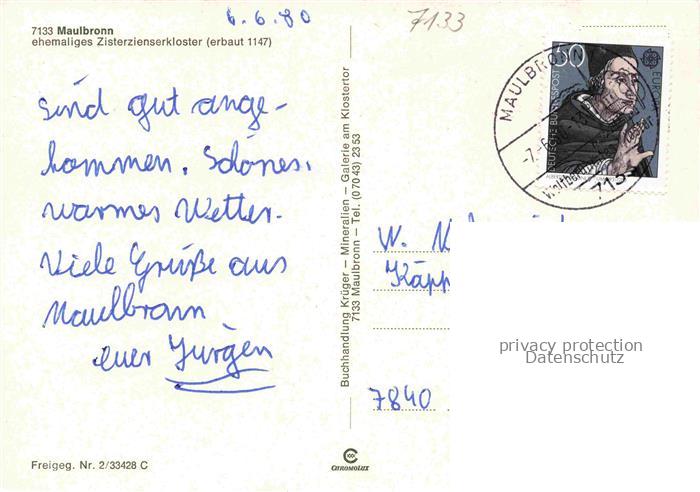 6.6.80
7133
7133 Maulbronn
ehemaliges Zisterzienserkloster (erbaut 1147)
sind gut ange-
kommen. Schönes,
warmes Wetter.
Viele Grüße aus
Maulbronn
euer Jürgen
Freigeg. Nr. 2/33428 C
Buchhandlung Krüger – Mineralien – Galerie am Klostertor
7133 Maulbronn – Tel. (0 70 43) 23 53
CHROMOLUX
50
EUROPA
DEUTSCHE BUNDESPOST
MAULBRONN
-7.-6.
713
W.
Käpp
7840
privacy protection
Datenschutz